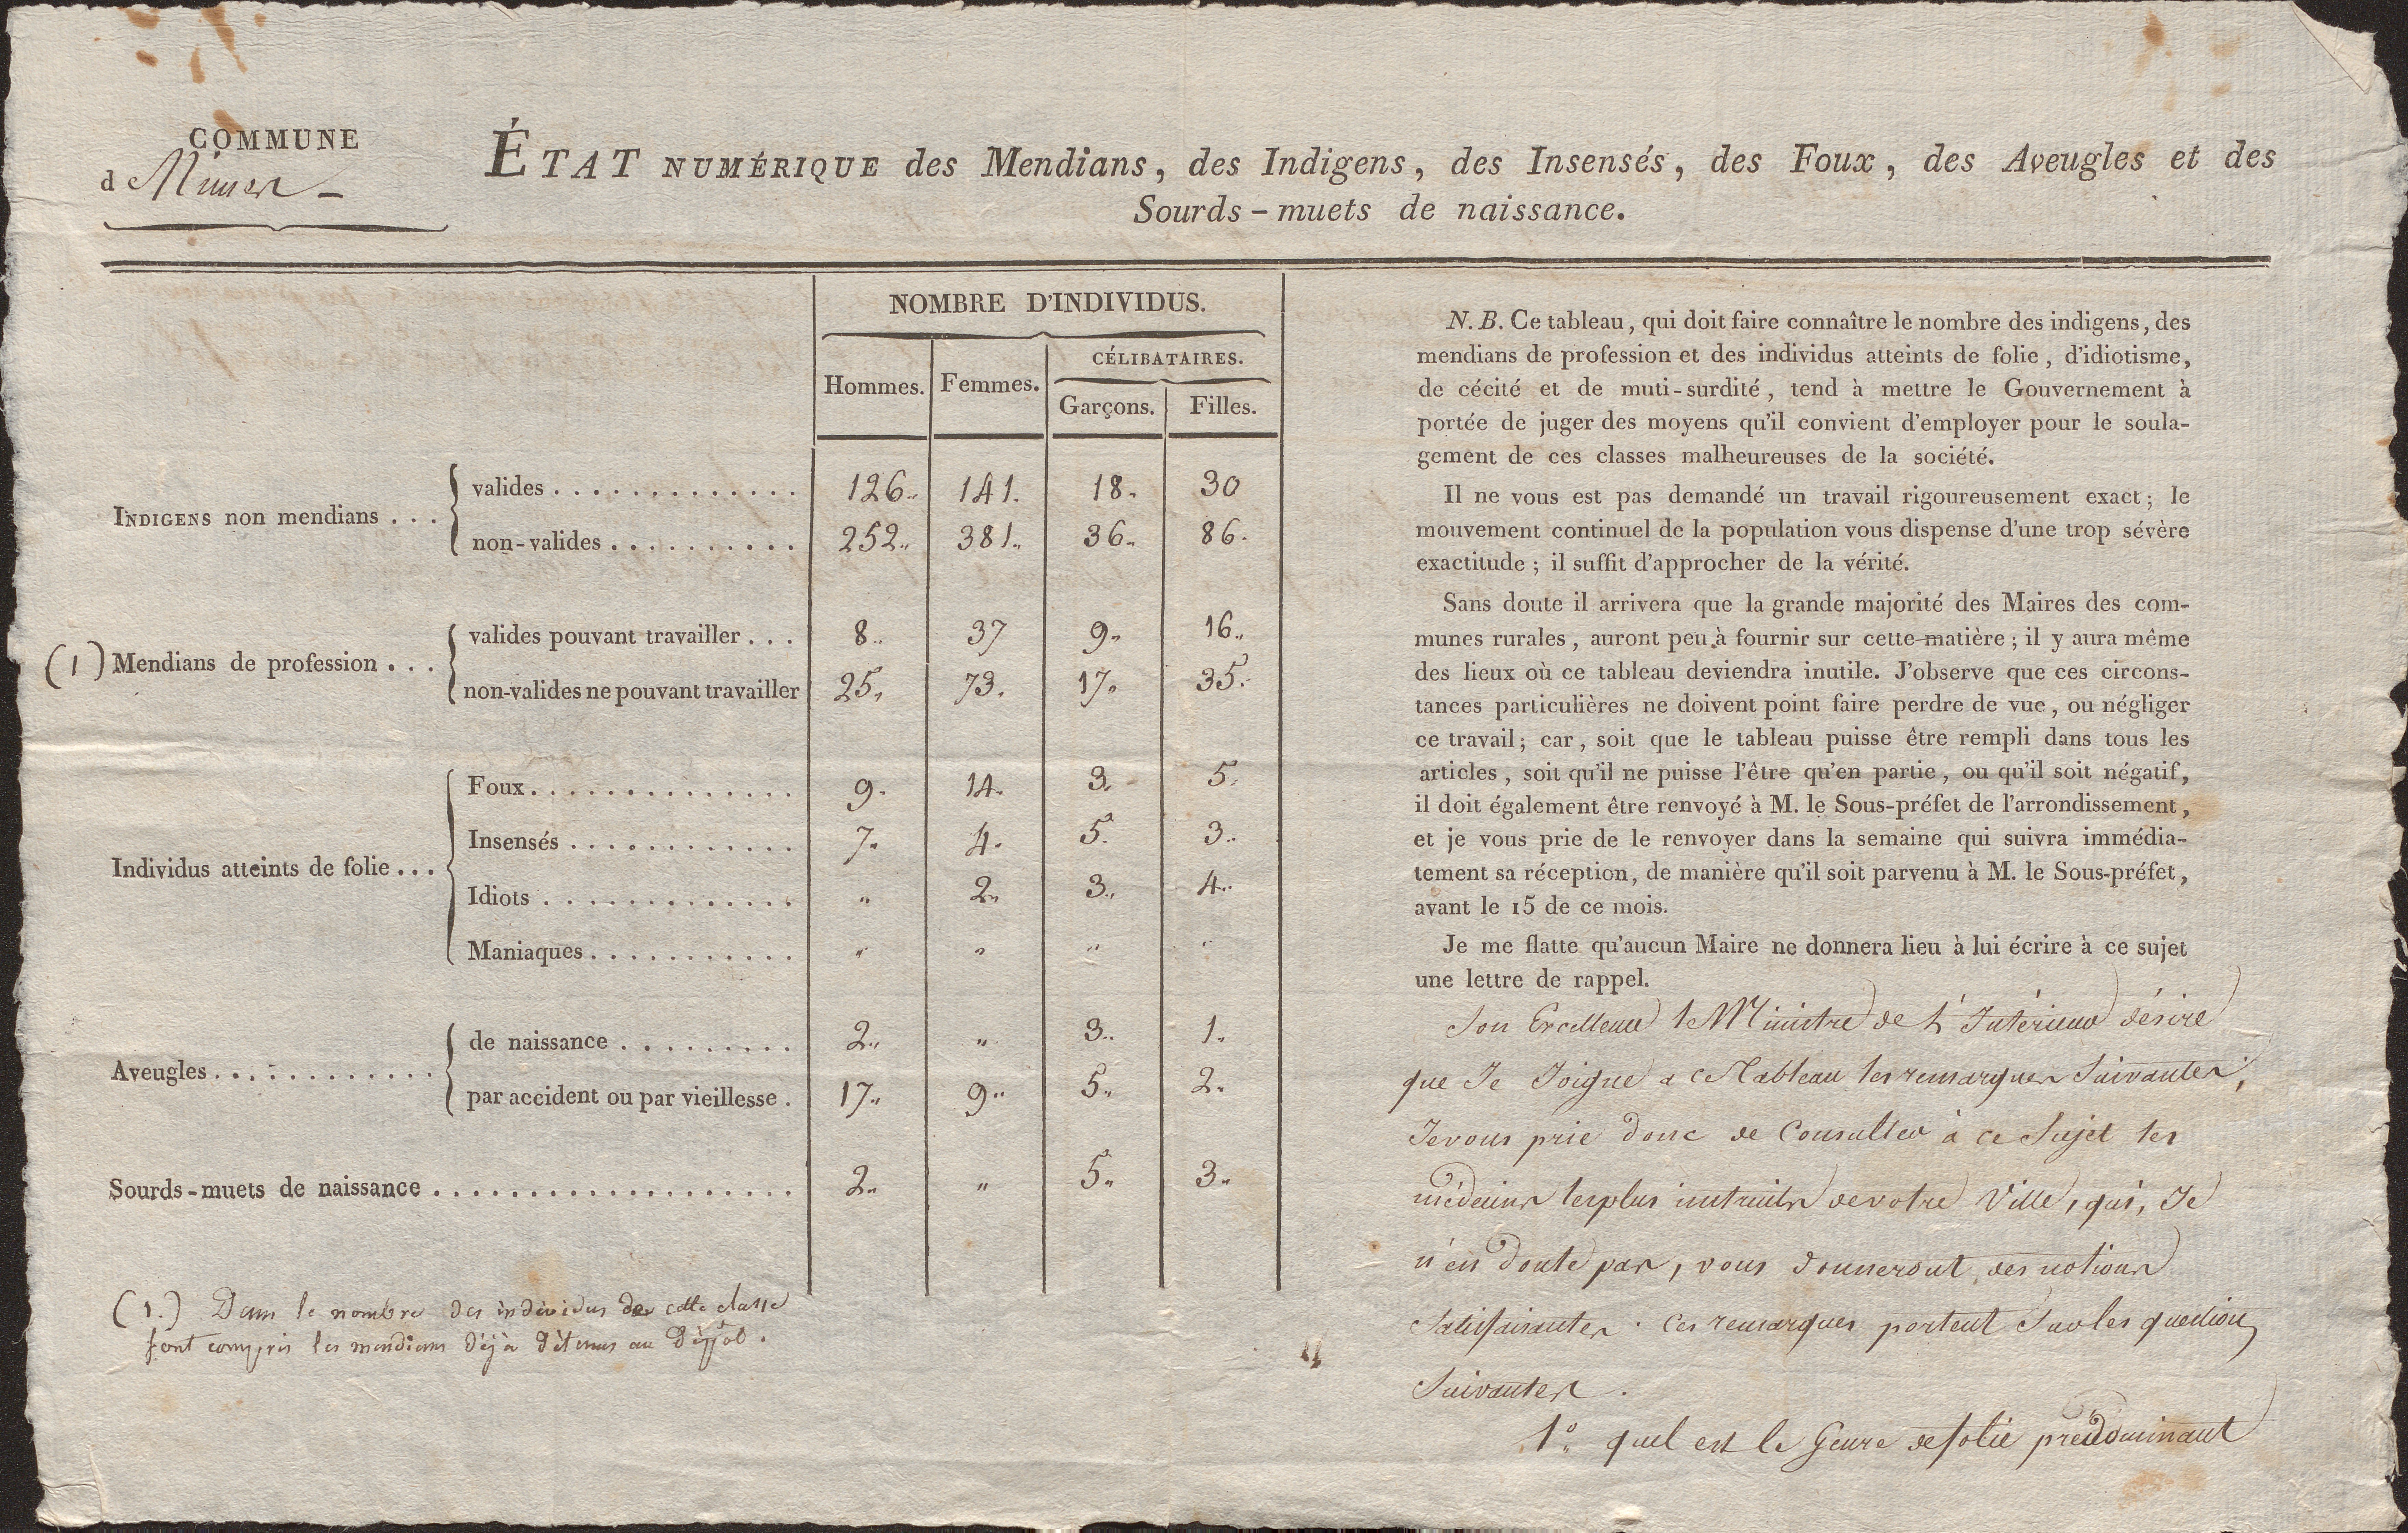 COMMUNE
d Nimes
ÉTAT NUMÉRIQUE des Mendians, des Indigens, des Insensés, des Foux, des Aveugles et des
Sourds-muets de naissance.
NOMBRE D'INDIVIDUS.
Hommes. Femmes. CÉLIBATAIRES.
Garçons. Filles.
INDIGENS non mendians . . .
valides . . . . . . . . . . . . . 126 141. 18. 30
non-valides . . . . . . . . . . 252 381 36 86.
(1) Mendians de profession . . .
valides pouvant travailler . . . 8 37 9 16
non-valides ne pouvant travailler 25 73. 17 35
Individus atteints de folie . . .
Foux. . . . . . . . . . . . . . 9 14 3 5
Insensés . . . . . . . . . . . . 7 4 5 3
Idiots . . . . . . . . . . . . . " 2 3 4
Maniaques . . . . . . . . . . . " " " "
Aveugles . . . . . . . . . . . .
de naissance . . . . . . . . . 2 " 3 1
par accident ou par vieillesse . 17 9 5 2
Sourds-muets de naissance . . . . . . . . . . . . . . . . . . . 2 " 5 3
(1.) Dans le nombre des individus de cette classe
sont compris les mendians déjà détenus au Dépôt.
N. B. Ce tableau, qui doit faire connaître le nombre des indigens, des
mendians de profession et des individus atteints de folie, d'idiotisme,
de cécité et de muti-surdité, tend à mettre le Gouvernement à
portée de juger des moyens qu'il convient d'employer pour le soula-
gement de ces classes malheureuses de la société.
Il ne vous est pas demandé un travail rigoureusement exact; le
mouvement continuel de la population vous dispense d'une trop sévère
exactitude; il suffit d'approcher de la vérité.
Sans doute il arrivera que la grande majorité des Maires des com-
munes rurales, auront peu à fournir sur cette matière; il y aura même
des lieux où ce tableau deviendra inutile. J'observe que ces circons-
tances particulières ne doivent point faire perdre de vue, ou négliger
ce travail; car, soit que le tableau puisse être rempli dans tous les
articles, soit qu'il ne puisse l'être qu'en partie, ou qu'il soit négatif,
il doit également être renvoyé à M. le Sous-préfet de l'arrondissement,
et je vous prie de le renvoyer dans la semaine qui suivra immédia-
tement sa réception, de manière qu'il soit parvenu à M. le Sous-préfet,
avant le 15 de ce mois.
Je me flatte qu'aucun Maire ne donnera lieu à lui écrire à ce sujet
une lettre de rappel.
Son Excellence le Ministre de L'Intérieur désire
que Je Joigne a ce Tableau les remarques Suivantes,
Je vous prie donc de Consulter à ce Sujet les
médecins les plus instruits de votre Ville, qui, Je
n'en Doute pas, vous donneront des notions
Satisfaisantes. Ces remarques portent Sur les question
Suivantes.
1º. quel est le Genre de folie prédominant